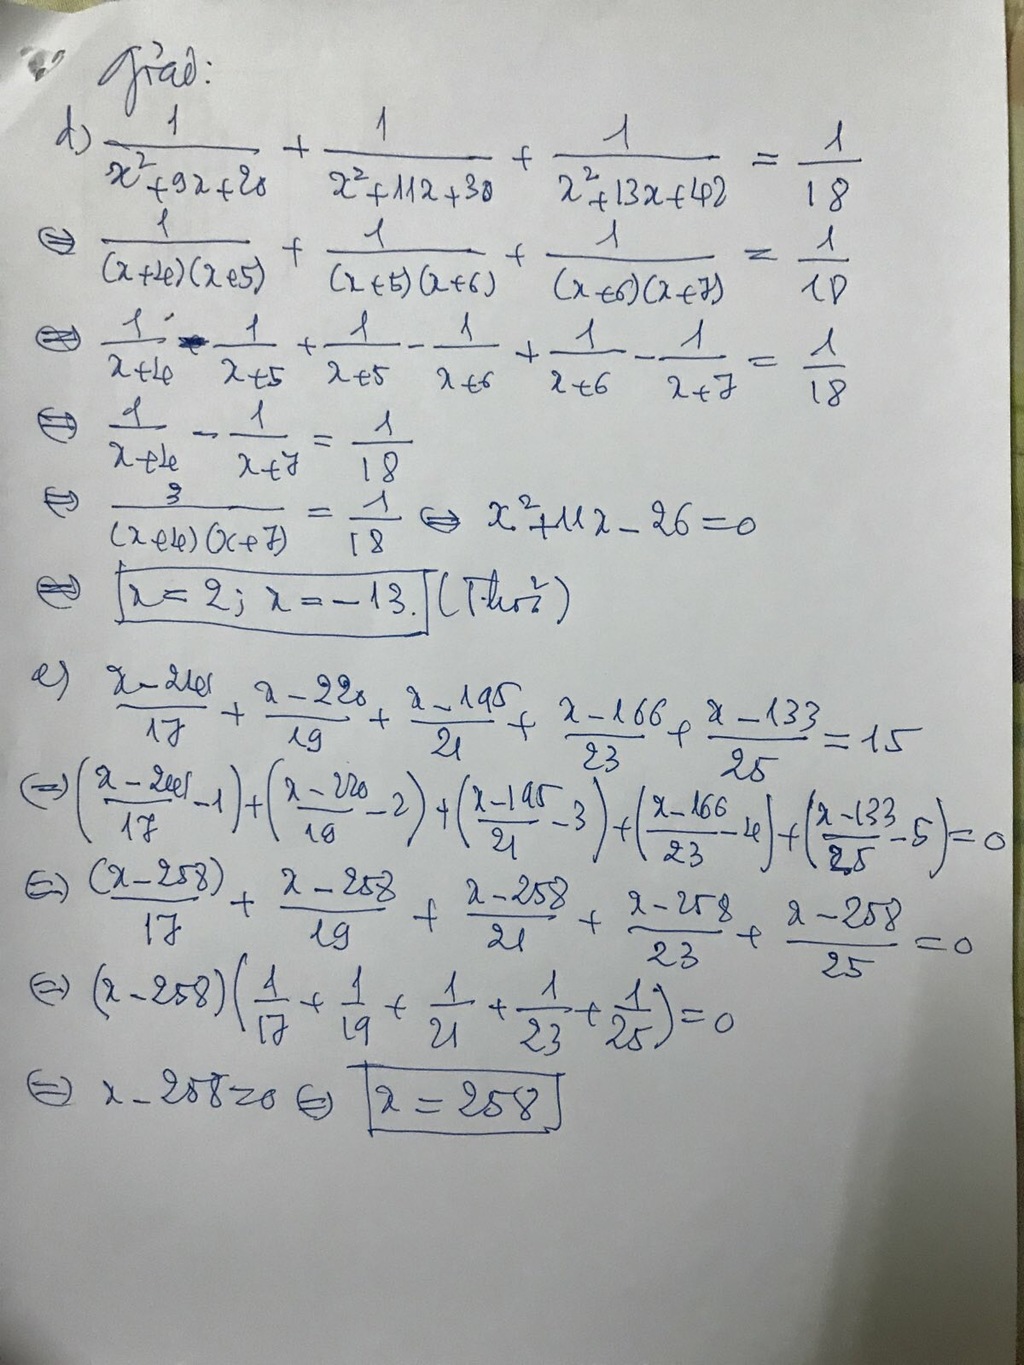 Giải:
d) 1/(x²+9x+20) + 1/(x²+11x+30) + 1/(x²+13x+42) = 1/18
⇔ 1/((x+4)(x+5)) + 1/((x+5)(x+6)) + 1/((x+6)(x+7)) = 1/18
⇔ 1/(x+4) - 1/(x+5) + 1/(x+5) - 1/(x+6) + 1/(x+6) - 1/(x+7) = 1/18
⇔ 1/(x+4) - 1/(x+7) = 1/18
⇔ 3/((x+4)(x+7)) = 1/18 ⇔ x²+11x-26=0
⇔ x=2; x=-13. (Thoả)
e) (x-241)/17 + (x-220)/19 + (x-195)/21 + (x-166)/23 + (x-133)/25 = 15
⇔ ((x-241)/17 - 1) + ((x-220)/19 - 2) + ((x-195)/21 - 3) + ((x-166)/23 - 4) + ((x-133)/25 - 5) = 0
⇔ (x-258)/17 + (x-258)/19 + (x-258)/21 + (x-258)/23 + (x-258)/25 = 0
⇔ (x-258)(1/17 + 1/19 + 1/21 + 1/23 + 1/25) = 0
⇔ x-258=0 ⇔ x=258